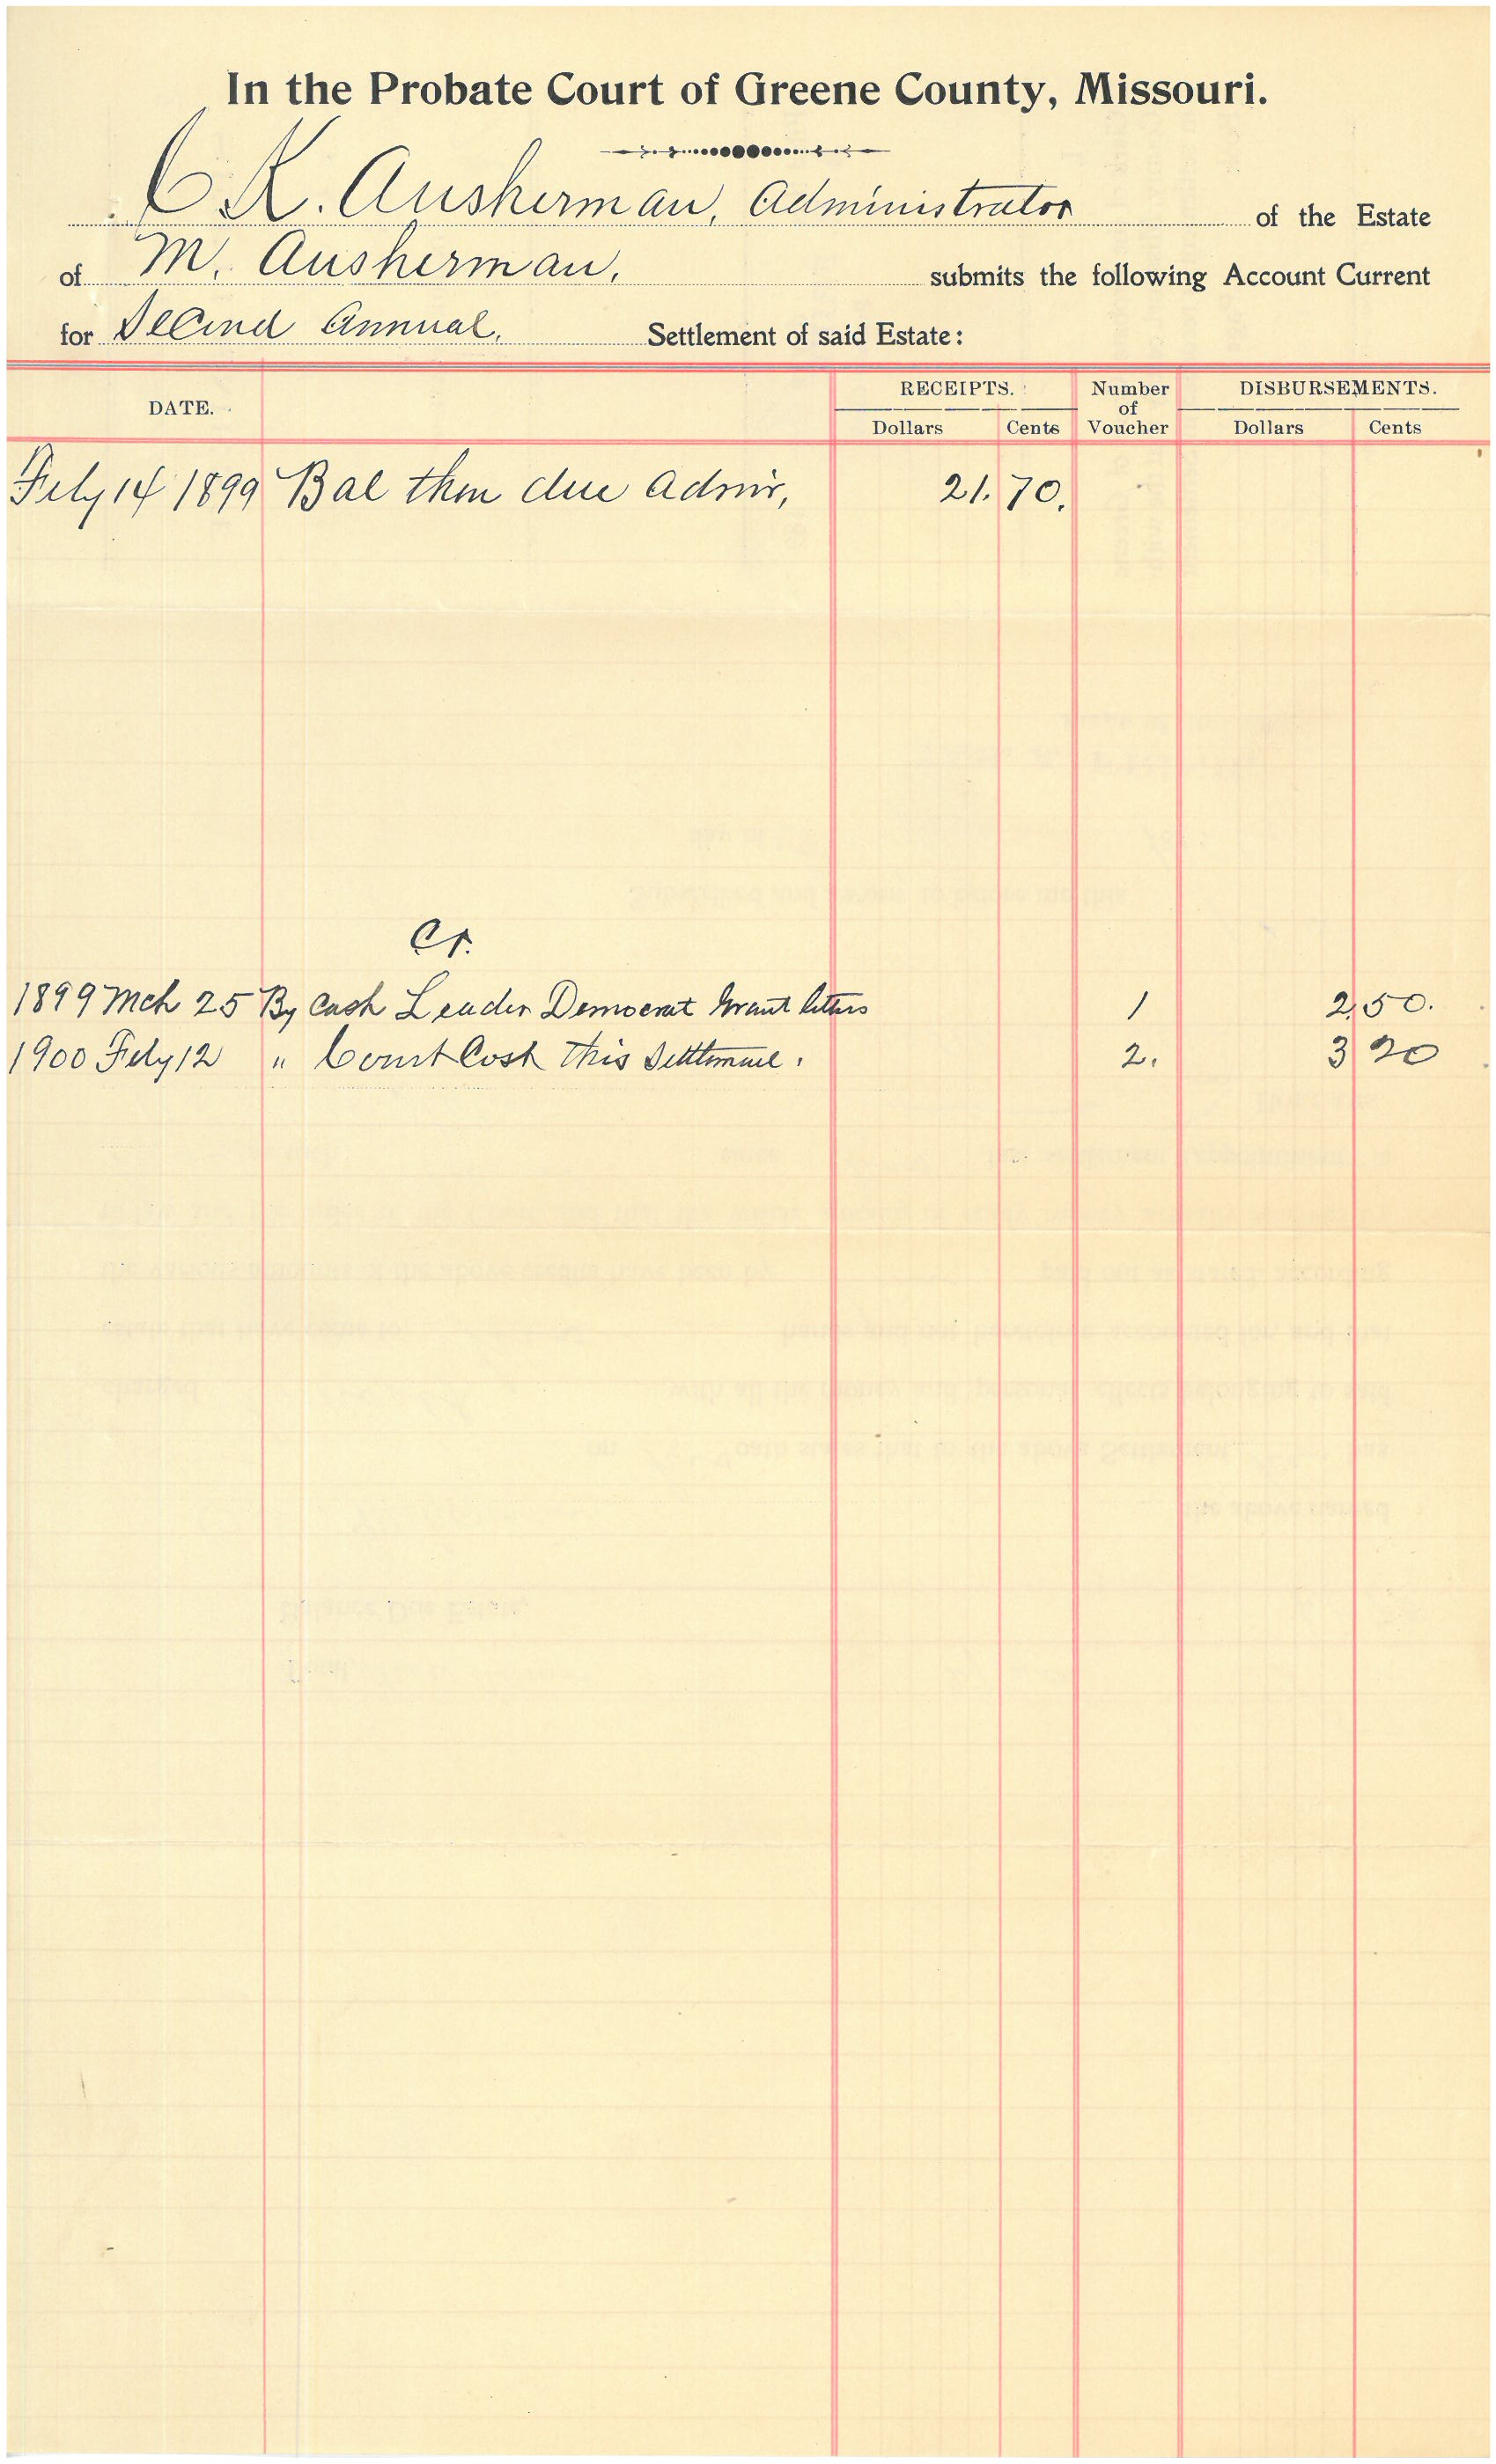 In the Probate Court of Greene County, Missouri.
C K. Ausherman, Administrator of the Estate
of M. Ausherman, submits the following Account Current
for Second Annual. Settlement of said Estate:
DATE. RECEIPTS. Number of Voucher DISBURSEMENTS.
Dollars Cents Dollars Cents
Feby 14 1899 Bal then due Admr, 21. 70.
Cr.
1899 Mch 25 By Cash Leader Democrat Grant letters 1 2.50.
1900 Feby 12 " Court Cost this Settlement. 2. 3 20